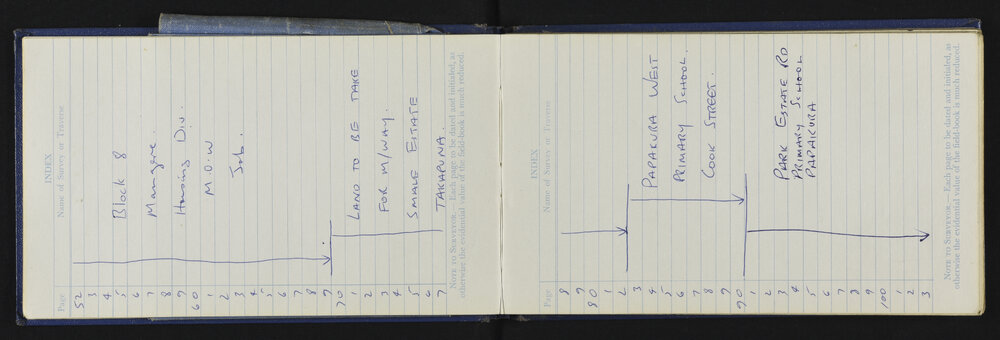 INDEX
Page Name of Survey or Traverse
52
3
4
5 Block 8
6
7 Mangere
8
9 Housing Div.
60
1 M.O.W
2
3 Job.
4
5
6
7
8
9
70
1 LAND TO BE TAKE
2
3 FOR M/WAY.
4
5 SMALE ESTATE
6
7 TAKAPUNA.
NOTE TO SURVEYOR.—Each page to be dated and initialed, as
otherwise the evidential value of the field-book is much reduced.
INDEX
Page Name of Survey or Traverse
8
9
80
1
2
3
4 PAPAKURA WEST
5
6 PRIMARY SCHOOL
7
8 COOK STREET.
9
90
1
2
3 PARK ESTATE RD
4 PRIMARY SCHOOL
5 PAPAKURA
6
7
8
9
100
1
2
3
NOTE TO SURVEYOR.—Each page to be dated and initialed, as
otherwise the evidential value of the field-book is much reduced.